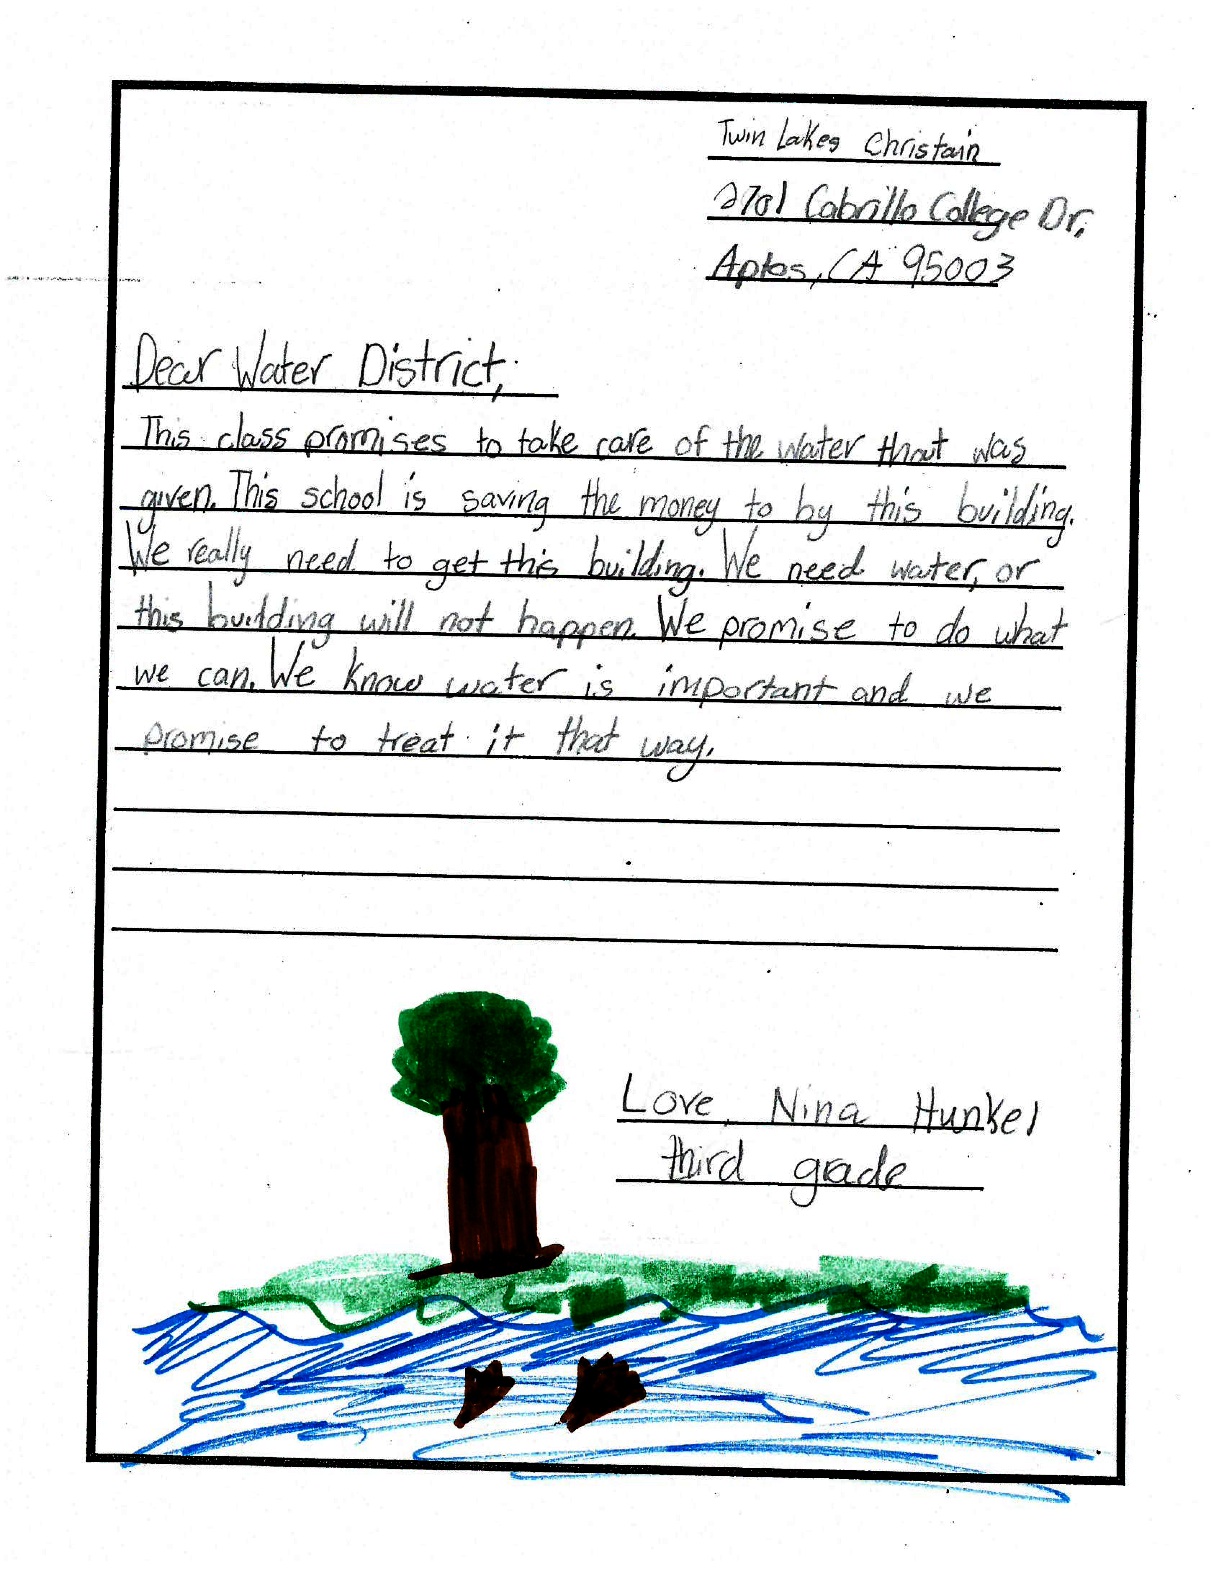 Twin Lakes Christain
2701 Cabrillo College Dr.
Aptos, CA 95003
Dear Water District,
This class promises to take care of the water that was
given. This school is saving the money to by this building.
We really need to get this building. We need water, or
this building will not happen. We promise to do what
we can. We know water is important and we
promise to treat it that way.
Love, Nina Hunkel
third grade